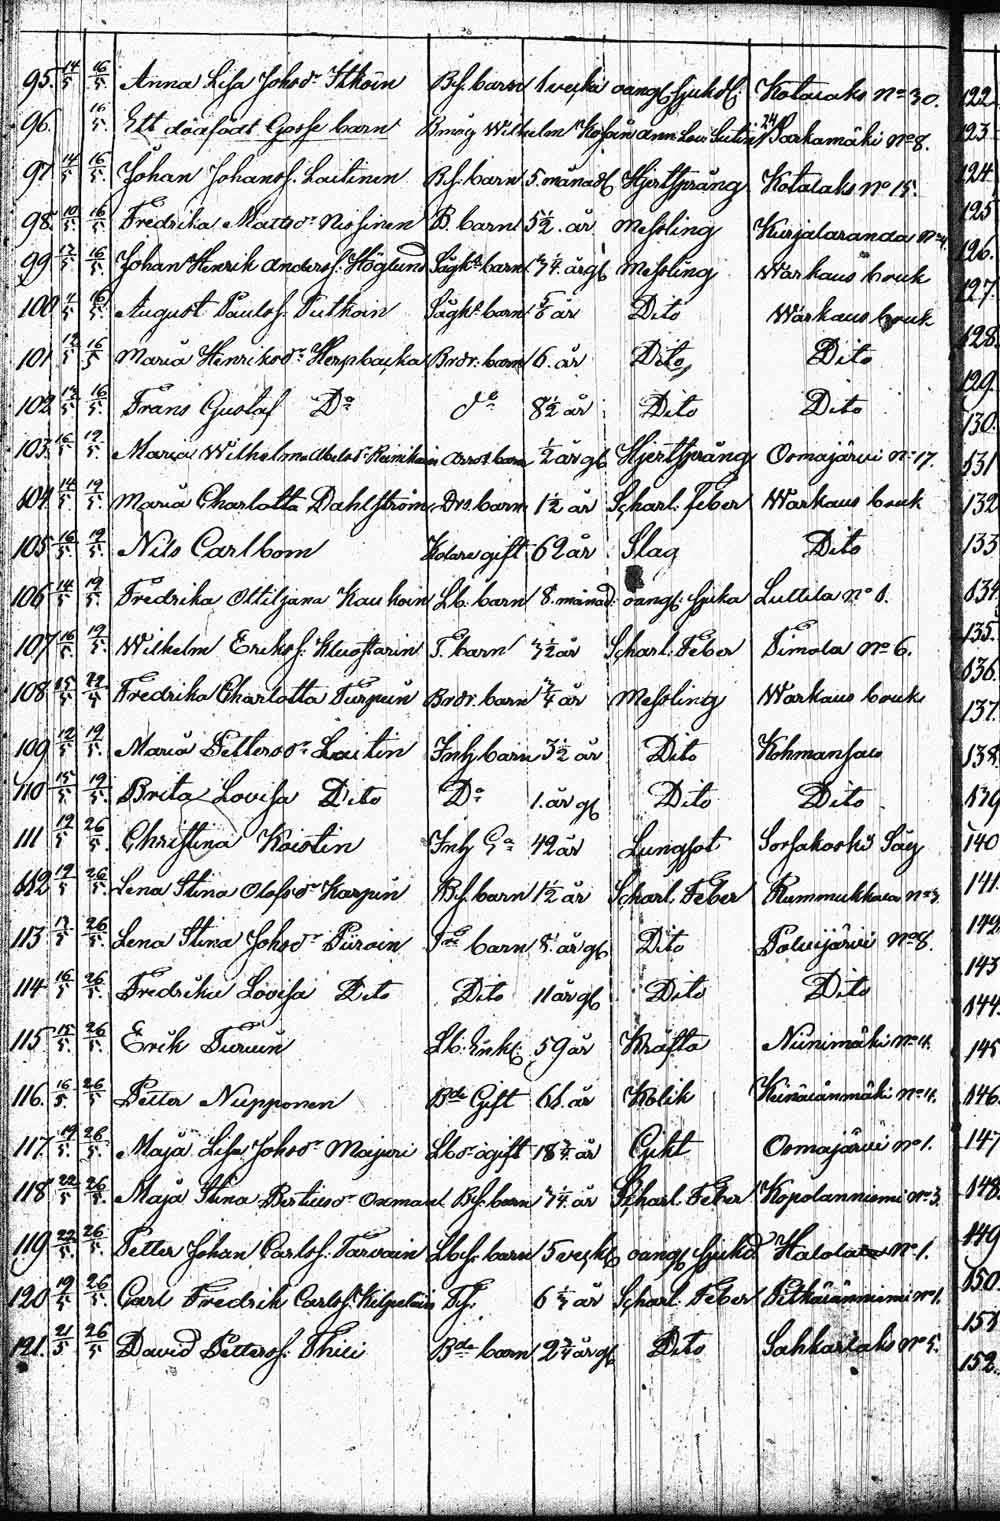 95. 14/5 16/5 Anna Lisa Johsdr Itkoin Bf. barn 1 vecka oang sjukd. Kotalaks No 30.
96. 16/5 Ett dödfödt Gosse barn Bmåg Wilhelm Ann Lov. Parkamäki No 8.
97 14/5 16/5 Johan Johansf. Laitinen Bf. barn 5 månad Hjertsprång Kotalaks No 15.
98. 10/5 16/5 Fredrika Mattsdr Nissinen B. barn 5 1/2 år Messling Kurjalaranda No 4.
99 12/5 16/5 Johan Henrik Andersf. Höglund Sågk. barn 3/4 årgl Messling Warkaus bruk
100 16/5 August Paulsf. Putkoin Sågk. barn år Dito Warkaus bruk
101 12/5 16/5 Maria Henriksdr Brdr. barn 6. år Dito Dito
102 12/5 16/5 Frans Gustaf Do do 8 1/2 år Dito Dito
103. 16/5 19/5 Maria Wilhelmina Abelsdr Reinikain barn 1/2 årgl Hjertsprång Osmajärvi No 17.
104 14/5 19/5 Maria Charlotta Dahlström Drs. barn 1 1/2 år Scharl. feber Warkaus bruk
105 16/5 19/5 Nils Carlbom Kolare gift 62 år Slag Dito
106 14/5 19/5 Fredrika Ottiljana Kauhain Lb. barn 8. månad. oang. sjuka Luttila No 1.
107 16/5 19/5 Wilhelm Eriksf. Kluostarin T. barn 3 1/2 år Scharl. Feber Timola No 6.
108 15/5 22/5 Fredrika Charlotta Turpein Brdr. barn 3/4 år Messling Warkaus bruk
109 12/5 19/5 Maria Pettersdr Laitin Inh barn 3 1/2 år Dito Kohmansalo
110 15/5 19/5 Brita Lovisa Dito Do 1. år gl Dito Dito
111 19/5 26/5 Christina Koistin Inh 42 år Lungsot Sorsakoski Såg
112 19/5 26/5 Lena Stina Olofsdr Karpin Bf. barn 1 1/2 år Scharl. Feber Rummukkala No 3.
113 17/5 26/5 Lena Stina Johsdr Piirain barn 8. år gl Dito Polvijärvi No 8.
114 16/5 26/5 Fredrika Lovisa Dito Dito 11 år gl Dito Dito
115. 15/5 26/5 Erik Turuin Lb. Enkl. 59 år Kräfta Niinimäki No 4.
116. 16/5 26/5 Petter Nupponen Bde Gift 61. år Kolik No 4.
117. 19/5 26/5 Maja Lisa Johsdr Majuri Lbdr ogift 18 3/4 år Gikt Osmajärvi No 1.
118 22/5 26/5 Maja Stina Oxman Bf. barn 3/4 år Scharl. Feber Kopolanniemi No 3.
119 22/5 26/5 Petter Johan Carlsf. Tarvain Lbf. barn 5 veckl oang sjukd Halola No 1.
120 19/5 26/5 Carl Fredrik Carlsf. Kilpelain Tf. 6 1/2 år Scharl. Feber Pitkälänniemi No 1.
121. 21/5 26/5 David Pettersf. Thiu Bde barn 2 3/4 år gl Dito Sahkarlaks No 5.
122
123
124
125
126.
127.
128.
129.
130.
131
132
133
134
135.
136.
137.
138.
139
140
141.
142.
143
144.
145
146.
147
148.
149
150.
151
152.